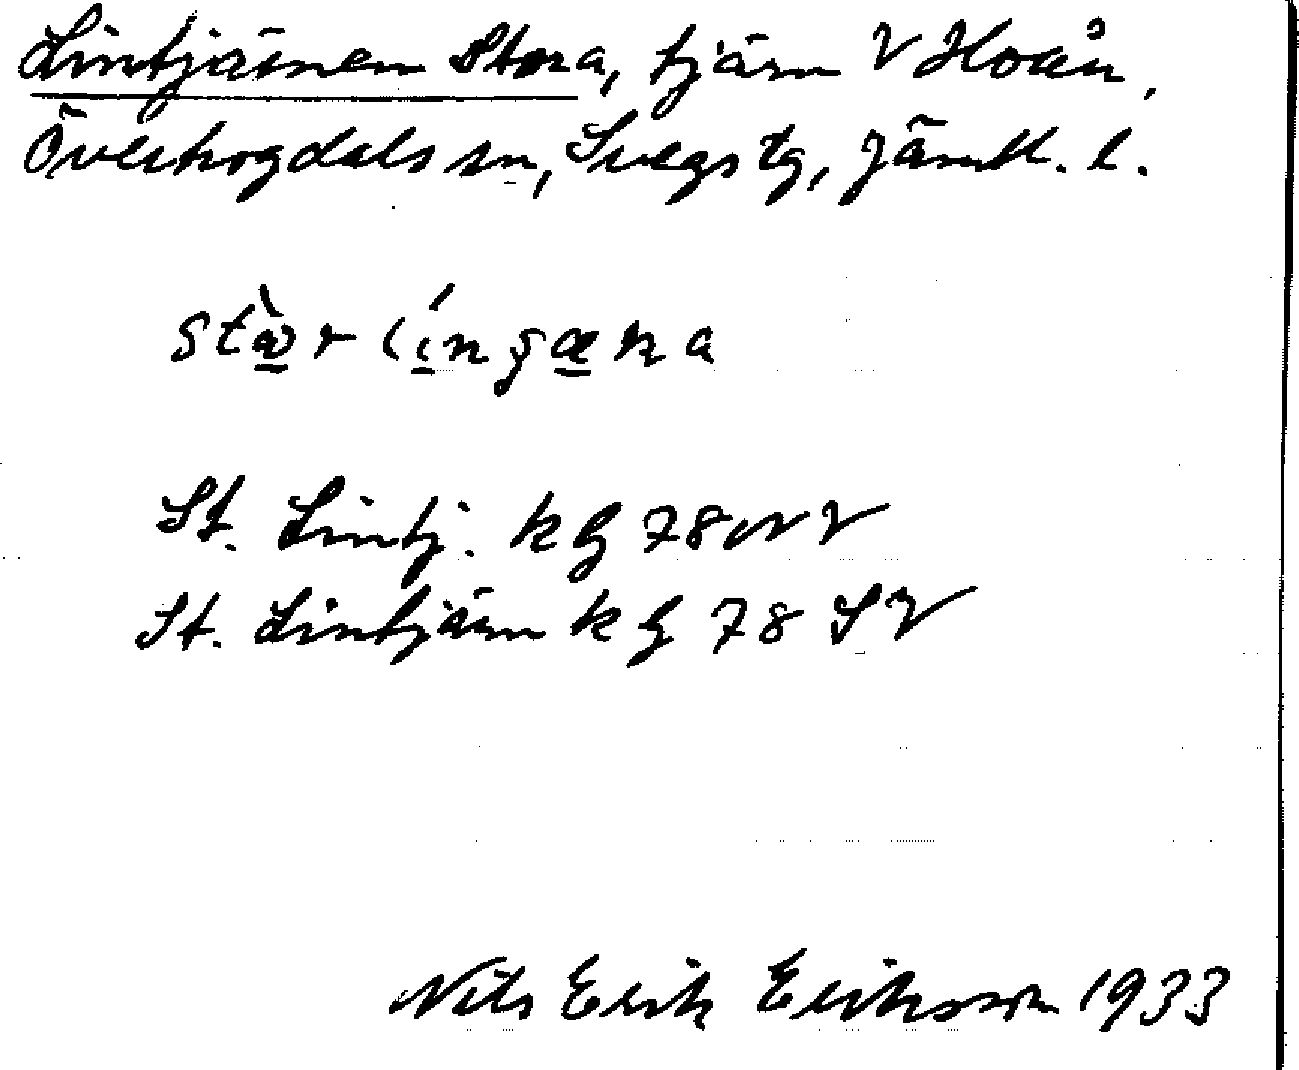 Lintjärnen Stora, tjärn V Hoån,
Överhogdals sn, Svegs tg, Jämtl. l.
St. Lintj. k G 78 NV
St. Lintjärn k G 78 SV
Nils Erik Eriksson 1933